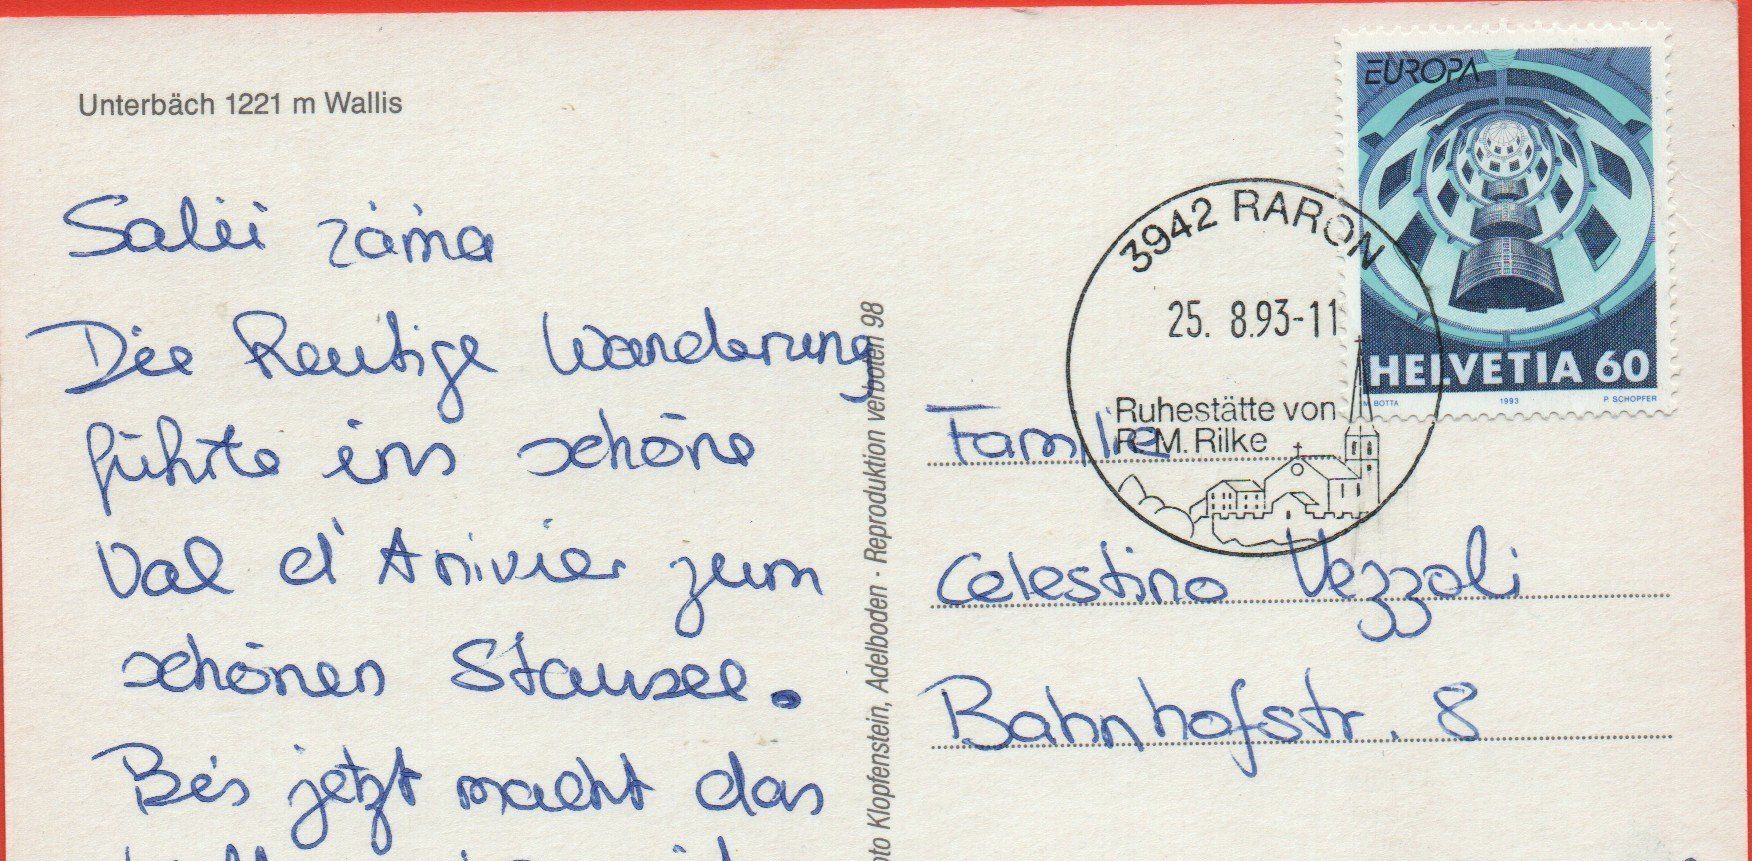 Unterbäch 1221 m Wallis
Salü zäma
Die Heutige Wanderung
führte ins schöne
Val d'Anivier zum
schönen Stausee.
Bis jetzt macht das
oto Klopfenstein, Adelboden · Reproduktion verboten 98
EUROPA
HELVETIA 60
M. BOTTA 1993 P. SCHOPFER
3942 RARON
25. 8.93-11
Ruhestätte von
R. M. Rilke
Familie
Celestino Vezzoli
Bahnhofstr. 8